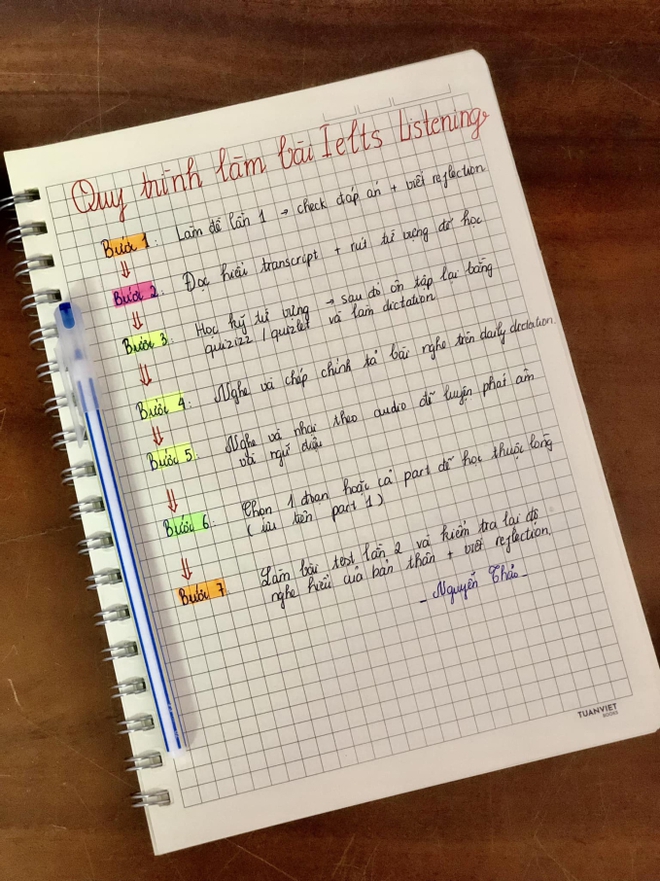 Quy trình làm bài Ielts Listening
Bước 1: Làm đề lần 1 → check đáp án + viết reflection
Bước 2: Đọc hiểu transcript + rút từ vựng để học
Bước 3: Học kỹ từ vựng → sau đó ôn tập lại bằng
quizizz / quizlet và làm dictation
Bước 4: Nghe và chép chính tả bài nghe trên daily dictation
Bước 5: Nghe và nhại theo audio để luyện phát âm
và ngữ điệu
Bước 6: Chọn 1 đoạn hoặc cả part để học thuộc lòng
(ưu tiên part 1)
Bước 7 Làm bài test lần 2 và kiểm tra lại độ
nghe hiểu của bản thân + viết reflection.
- Nguyễn Thảo -
TUANVIET
BOOKS